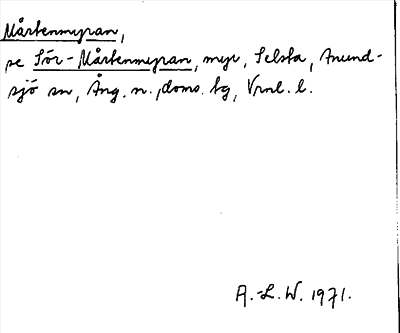 Mårtenmyran,
se Sör-Mårtenmyran, myr, Selsta, Anund-
sjö sn, Ång. n., doms. bg, Vrnl. l.
A.-L. W. 1971.